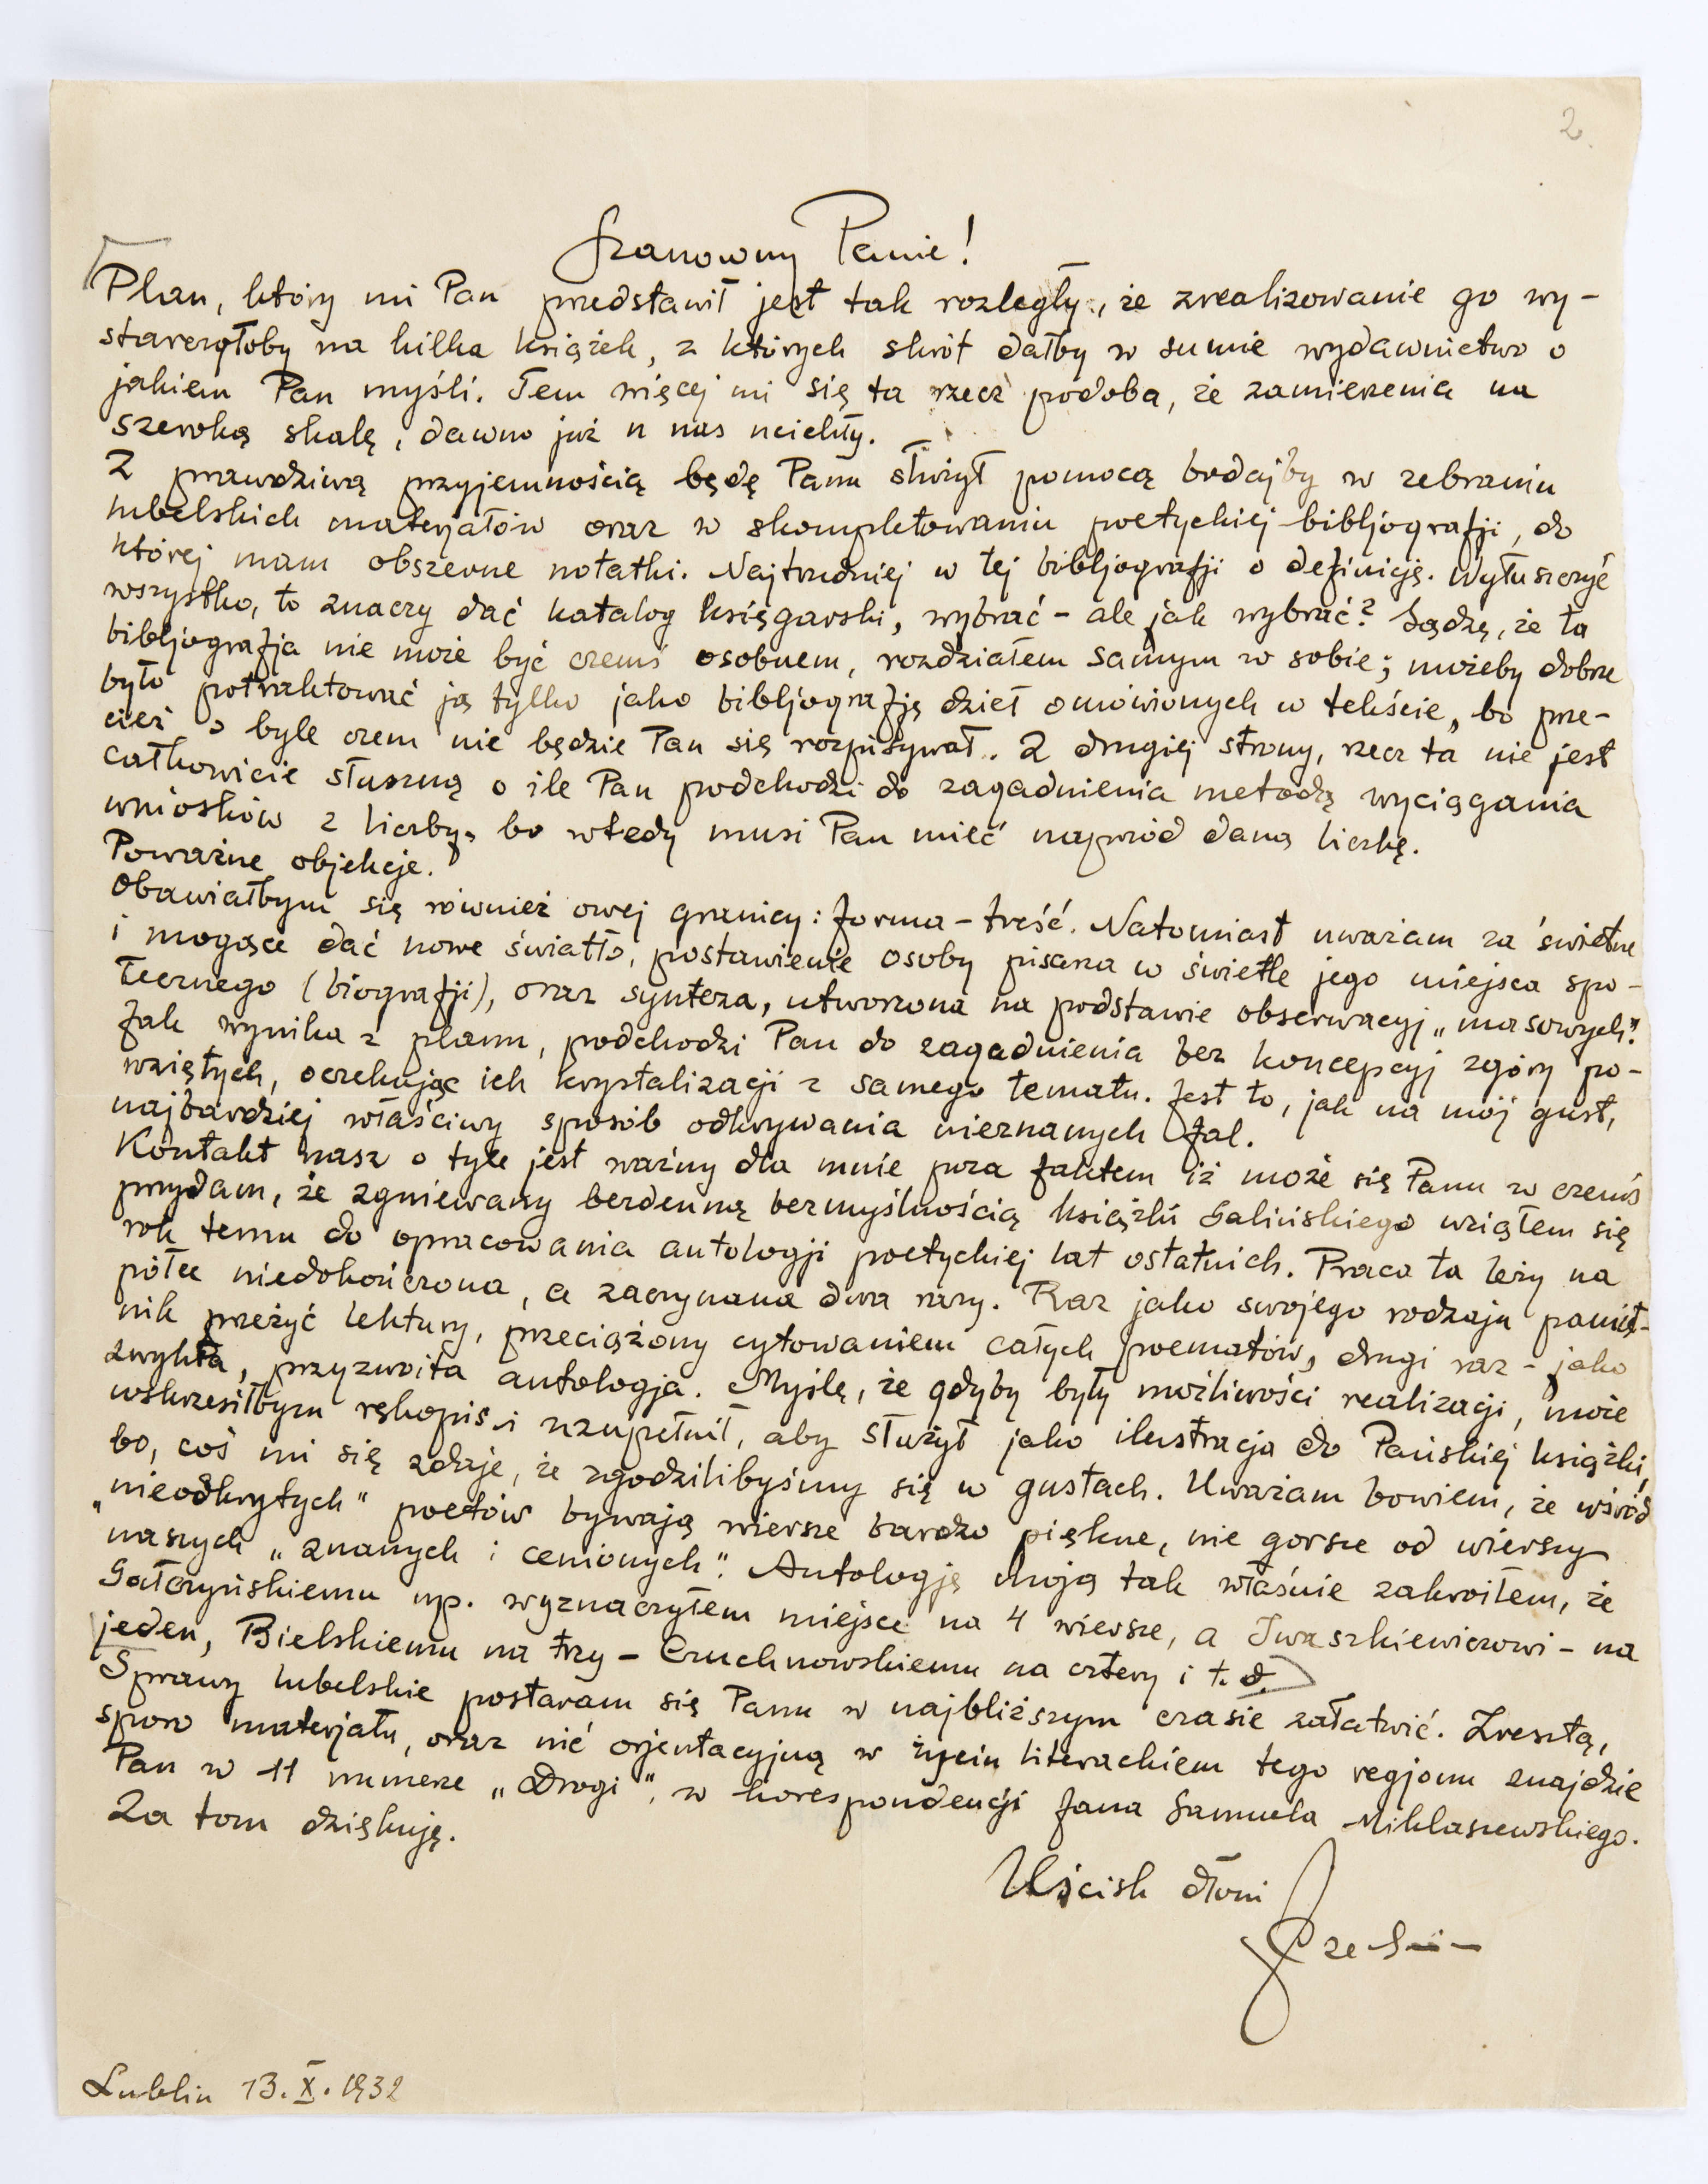 2
Szanowny Panie!
Plan, który mi Pan przedstawił jest tak rozległy, że zrealizowanie go wy-
starczyłoby na kilka książek, z których skrót dałby w sumie wydawnictwo o
jakiem Pan myśli. Tem więcej mi się ta rzecz podoba, że zamierzenia na
szeroką skalę, dawno już u nas ucichły.
Z prawdziwą przyjemnością będę Panu służył pomocą bodajby w zebraniu
lubelskich materjałów oraz w skompletowaniu poetyckiej bibljografji, do
której mam obszerne notatki. Najtrudniej w tej bibljografji o definicję. Wytłuszczyć
wszystko, to znaczy dać katalog księgarski, wybrać - ale jak wybrać? Sądzę, że ta
bibljografja nie może być czemś osobnem, rozdziałem samym w sobie; możeby dobrze
było potraktować ją tylko jako bibljografję dzieł omówionych w tekście, bo prze-
cież o byle czem nie będzie Pan się rozpisywał. Z drugiej strony, rzecz ta nie jest
całkowicie słuszną o ile Pan podchodzi do zagadnienia metodą wyciągania
wniosków z liczby, bo wtedy musi Pan mieć najpród daną liczbę.
Poważne objekcje.
Obawiałbym się również owej granicy: forma - treść. Natomiast uważam za świetne
i mogące dać nowe światło, postawienie osoby pisarza w świetle jego miejsca spo-
łecznego (biografji), oraz synteza, utworzona na podstawie obserwacyj „masowych".
Jak wynika z planu, podchodzi Pan do zagadnienia bez koncepcyj zgóry po-
wziętych, oczekując ich krystalizacji z samego tematu. Jest to, jak na mój gust,
najbardziej właściwy sposób odkrywania nieznanych fal.
Kontakt nasz o tyle jest ważny dla mnie poza faktem iż może się Panu w czemś
przydam, że zgniewany bezdenną bezmyślnością książki Galińskiego wziąłem się
rok temu do opracowania antologji poetyckiej lat ostatnich. Praca ta leży na
półce niedokończona, a zaczynana dwa razy. Raz jako swojego rodzaju pamięt-
nik przeżyć lektury, przeciążony cytowaniem całych poematów, drugi raz - jako
zwykła, przyzwoita antologja. Myślę, że gdyby były możliwości realizacji, może
wskrzesiłbym rękopis i uzupełnił, aby służył jako ilustracja do Pańskiej książki,
bo, coś mi się zdaje, że zgodzilibyśmy się w gustach. Uważam bowiem, że wśród
„nieodkrytych" poetów bywają wiersze bardzo piękne, nie gorsze od wierszy
naszych „znanych i cenionych". Antologję moją tak właśnie zakroiłem, że
Gałczyńskiemu np. wyznaczyłem miejsce na 4 wiersze, a Iwaszkiewiczowi - na
jeden, Bielskiemu na trzy - Czuchnowskiemu na cztery i t. d.
Sprawy lubelskie postaram się Panu w najbliższym czasie załatwić. Zresztą,
sporo materjału, oraz nić orjentacyjną w życiu literackiem tego regjonu znajdzie
Pan w 11 numerze „Drogi", w korespondencji Jana Samuela Miklaszewskiego.
Za tom dziękuję.
Uścisk dłoni
Lublin 13. X. 1932